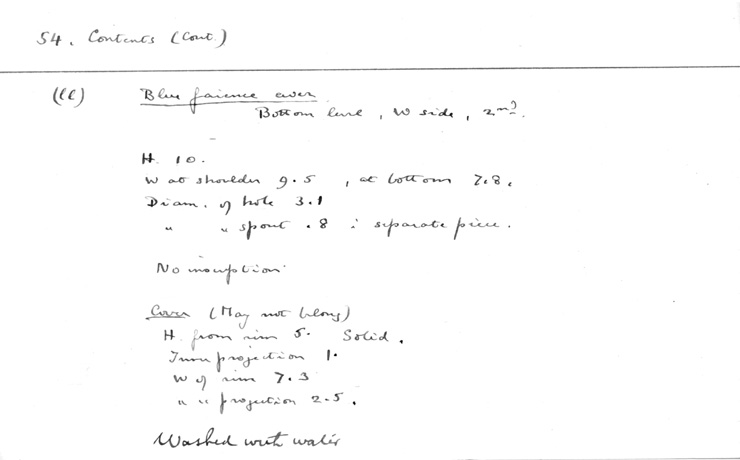 54. Contents (Cont.)
(ll) Blue faience ewer
Bottom level, W side, 2nd.
H. 10.
W at shoulder 9.5, at bottom 7.8.
Diam. of hole 3.1
" " spout .8 : separate piece.
No inscription
Cover (May not belong)
H. from rim 5. Solid.
Inner projection 1.
W of rim 7.3
" " projection 2.5.
Washed with water